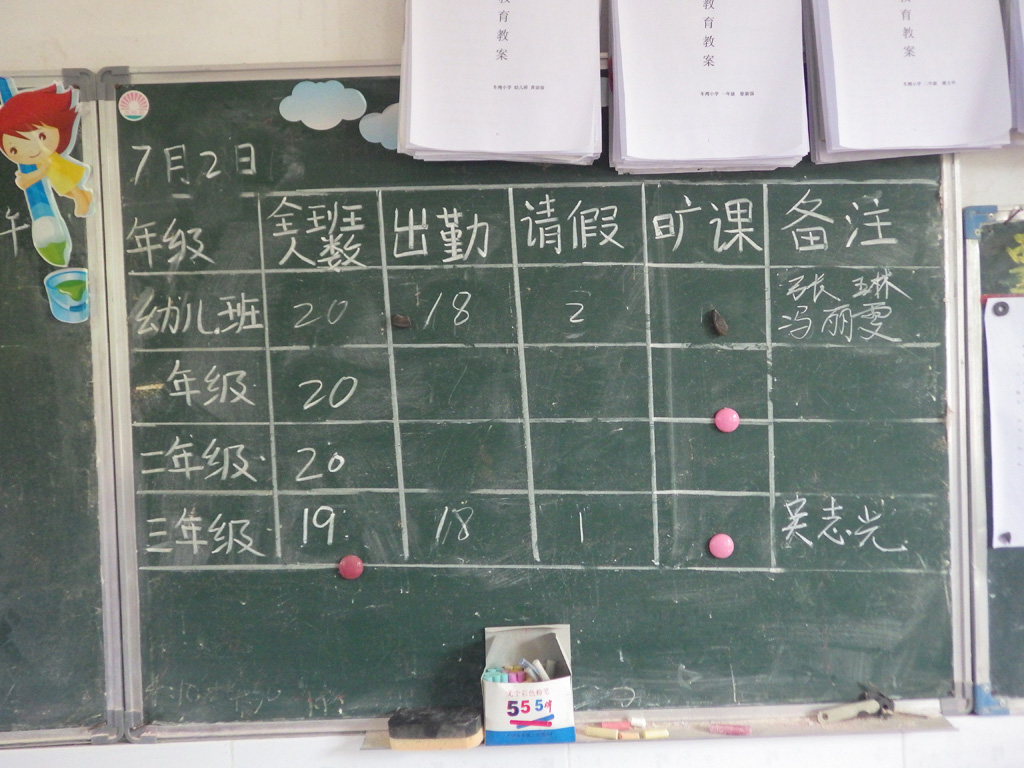 育
教
案
育
教
案
育
教
案
7月2日
年级 全班人数 出勤 请假 旷课 备注
幼儿班 20 18 2 张琳 冯丽雯
一年级 20
二年级 20
三年级 19 18 1 吴志光
午
5554